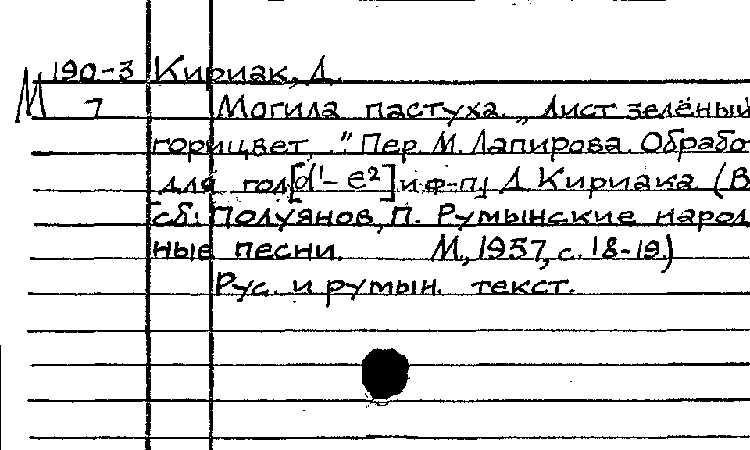 М 190-3 Кириак, Д.
7 Могила пастуха. „Лист зелёный
горицвет, ." Пер. М. Лапирова. Обрабо
для гол[d¹-e²] и ф-п; Д Кириака (В
сб: Полуянов, П. Румынские народ
ные песни. М., 1957, с. 18-19.)
Рус. и румын. текст.